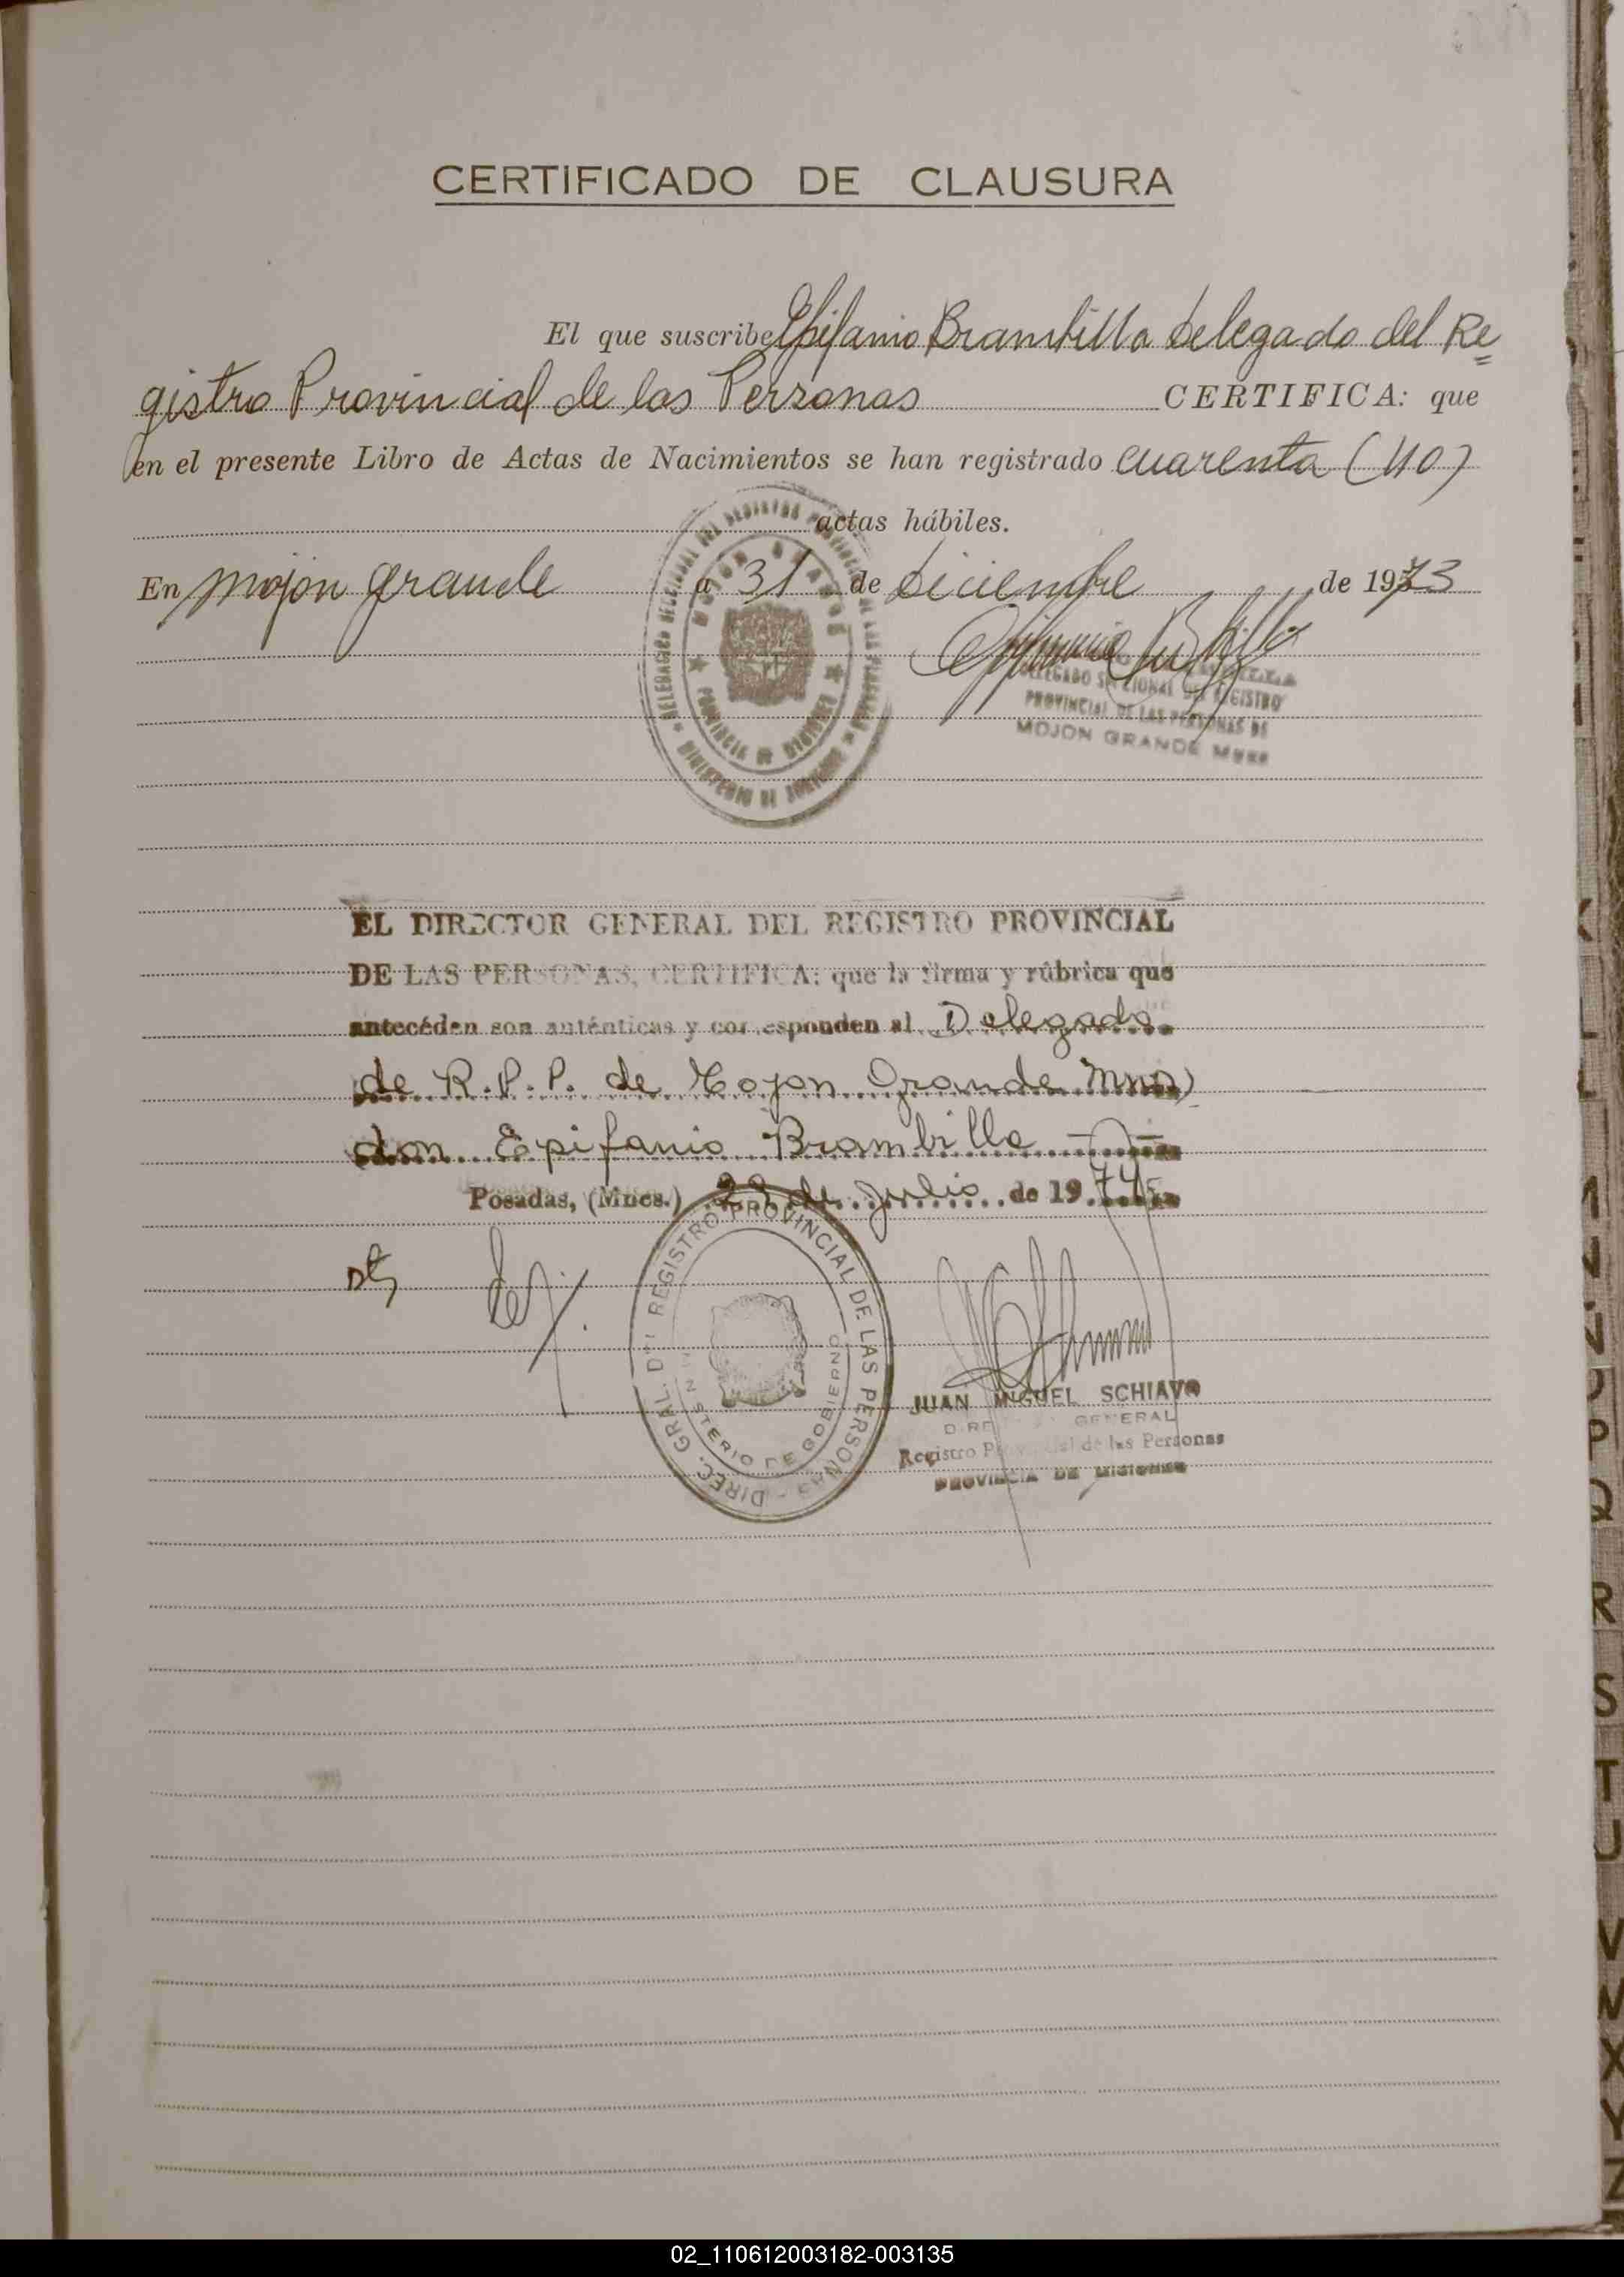 CERTIFICADO DE CLAUSURA
El que suscribe Epifanio Brambilla Delegado del Re=
gistro Provincial de las Personas CERTIFICA: que
en el presente Libro de Actas de Nacimientos se han registrado cuarenta (40)
actas hábiles.
En mojon grande a 31 de Diciembre de 1973
DELEGACION SECCIONAL DEL REGISTRO PROVINCIAL DE LAS PERSONAS
MOJON GRANDE
PROVINCIA DE MISIONES
MINISTERIO DE GOBIERNO
DELEGADO SECCIONAL DEL REGISTRO
PROVINCIAL DE LAS PERSONAS DE
MOJON GRANDE Mnes
EL DIRECTOR GENERAL DEL REGISTRO PROVINCIAL
DE LAS PERSONAS, CERTIFICA: que la firma y rúbrica que
antecéden son auténticas y corresponden al Delegado
de R.P.P. de Mojon Grande Mnes)
don Epifanio Brambilla
Posadas, (Mnes.) 29 de julio de 1974
DIREC. GRAL. DEL REGISTRO PROVINCIAL DE LAS PERSONAS
MINISTERIO DE GOBIERNO
JUAN MIGUEL SCHIAVO
DIRECTOR GENERAL
Registro Provincial de las Personas
PROVINCIA DE MISIONES
K
L
P
Q
R
S
T
U
V
W
X
Y
Z
02_110612003182-003135